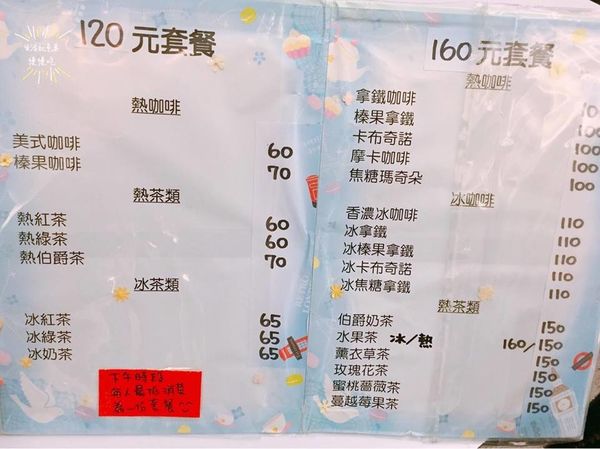 120 元套餐
熱咖啡
美式咖啡 60
榛果咖啡 70
熱茶類
熱紅茶 60
熱綠茶 60
熱伯爵茶 70
冰茶類
冰紅茶 65
冰綠茶 65
冰奶茶 65
下午時段
每人最低消費
為一份套餐
160 元套餐
熱咖啡
拿鐵咖啡
榛果拿鐵 100
卡布奇諾 100
摩卡咖啡 100
焦糖瑪奇朵 100
冰咖啡
香濃冰咖啡 110
冰拿鐵 110
冰榛果拿鐵 110
冰卡布奇諾 110
冰焦糖拿鐵 110
熱茶類
伯爵奶茶 150
水果茶 冰/熱 160/150
薰衣草茶 150
玫瑰花茶 150
蜜桃薔薇茶 150
蔓越莓果茶 150